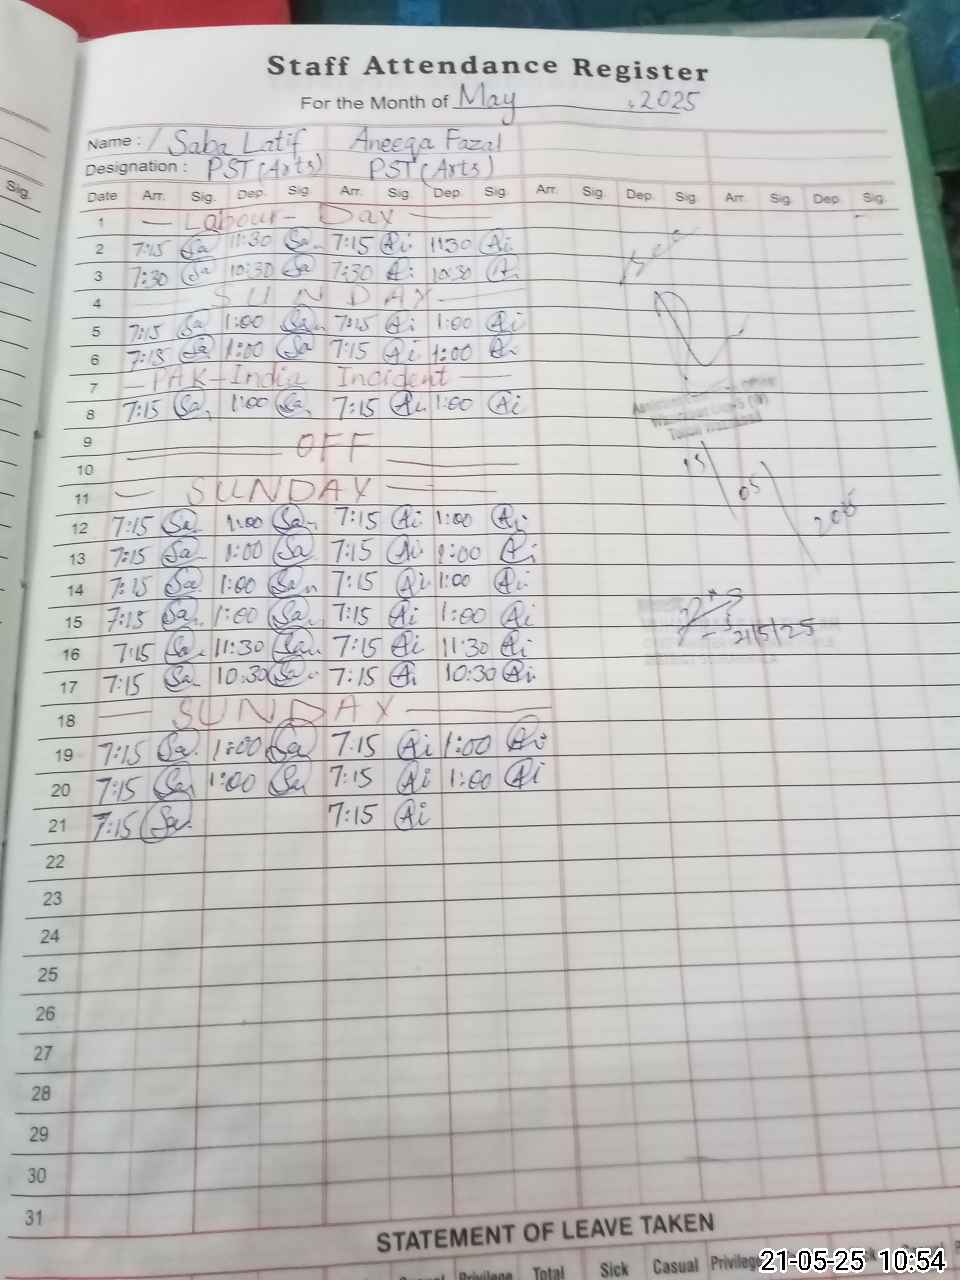 Staff Attendance Register
For the Month of May , 2025
Name : Saba Latif Aneeqa Fazal
Designation : PST (Arts) PST (Arts)
Sig.
Date Arr. Sig. Dep. Sig. Arr. Sig. Dep. Sig. Arr. Sig. Dep. Sig. Arr. Sig. Dep. Sig.
1 — Labour - Day —
2 7:15 Sa 11:30 Sa 7:15 Ai 11:30 Ai
3 7:30 Sa 10:30 Sa 7:30 Ai 10:30 A.
4 SUNDAY —
5 7:15 Sa 1:00 Sa 7:15 Ai 1:00 Ai
6 7:15 Sa 1:00 Sa 7:15 Ai 1:00 Ai
7 — PAK - India Incident —
8 7:15 Sa 1:00 Sa 7:15 Ai 1:00 Ai
9 OFF
10
11 — SUNDAY —
12 7:15 Sa 1:00 Sa 7:15 Ai 1:00 Ai
13 7:15 Sa 1:00 Sa 7:15 Ai 1:00 Ai
14 7:15 Sa 1:00 Sa 7:15 Ai 1:00 Ai
15 7:15 Sa 1:00 Sa 7:15 Ai 1:00 Ai
16 7:15 Sa 11:30 Sa 7:15 Ai 11:30 Ai
17 7:15 Sa 10:30 Sa 7:15 Ai 10:30 Ai
18 — SUNDAY —
19 7:15 Sa 1:00 Sa 7:15 Ai 1:00 Ai
20 7:15 Sa 1:00 Sa 7:15 Ai 1:00 Ai
21 7:15 Sa 7:15 Ai
15/05/2025
21/5/25
22
23
24
25
26
27
28
29
30
31
STATEMENT OF LEAVE TAKEN
Casual Privilege Total Sick Casual Privilege
21-05-25 10:54